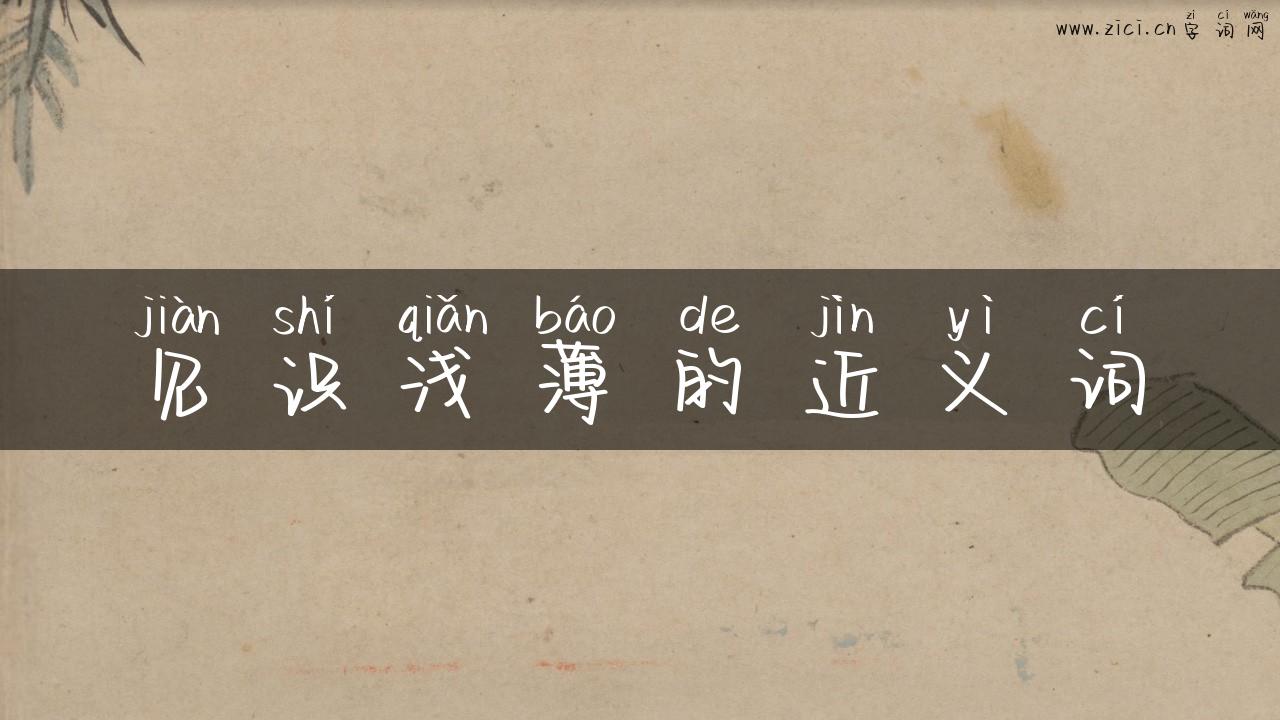 zì cí wǎng
www.zici.cn 字词网
jiàn shí qiǎn báo de jìn yì cí
见识浅薄的近义词